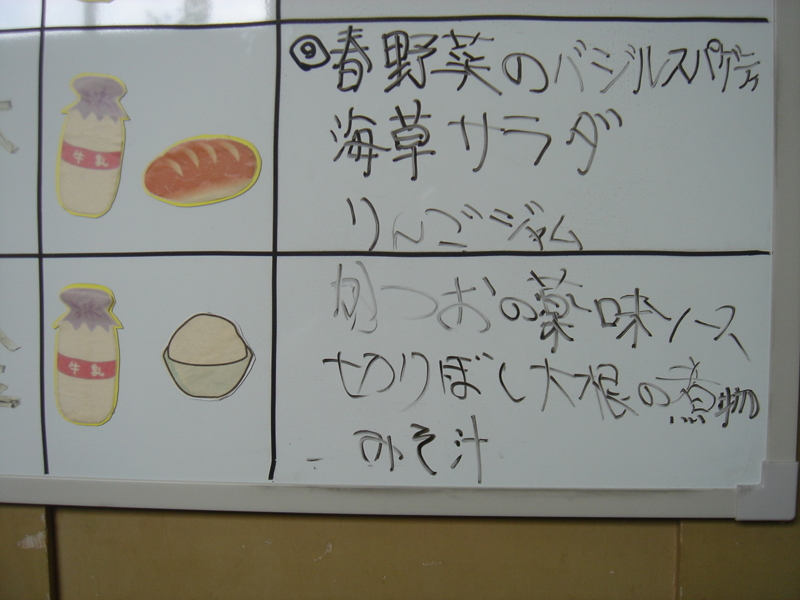 牛乳
⑨春野菜のバジルスパゲティ
海草サラダ
りんごジャム
牛乳
かつおの薬味ソース
切りぼし大根の煮物
みそ汁